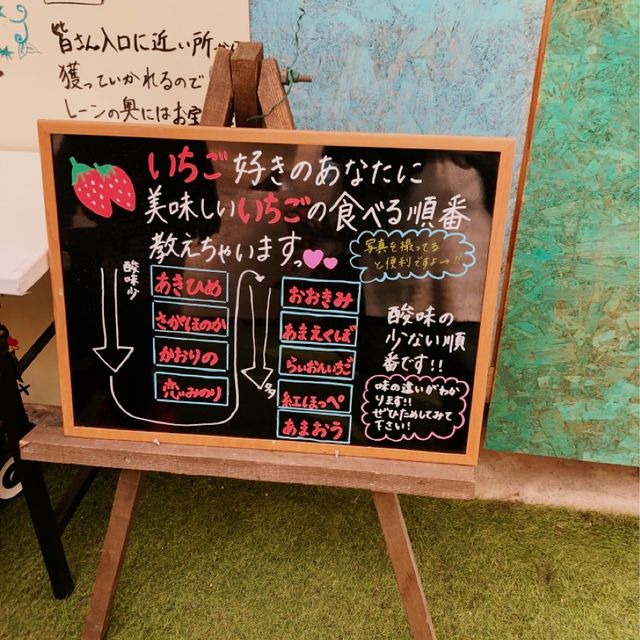 皆さん入口に近い所から
獲っていかれるので
レーンの奥にはお宝
いちご好きのあなたに
美味しいいちごの食べる順番
教えちゃいますっ
写真を撮ってる
と便利ですよ→!!
酸味少
あきひめ
さがほのか
かおりの
恋みのり
おおきみ
あまえくぼ
らいおんいちご
紅ほっぺ
あまおう
多
酸味の
少ない順
番です!!
味の違いがわか
ります!!
ぜひためしてみて
下さい!